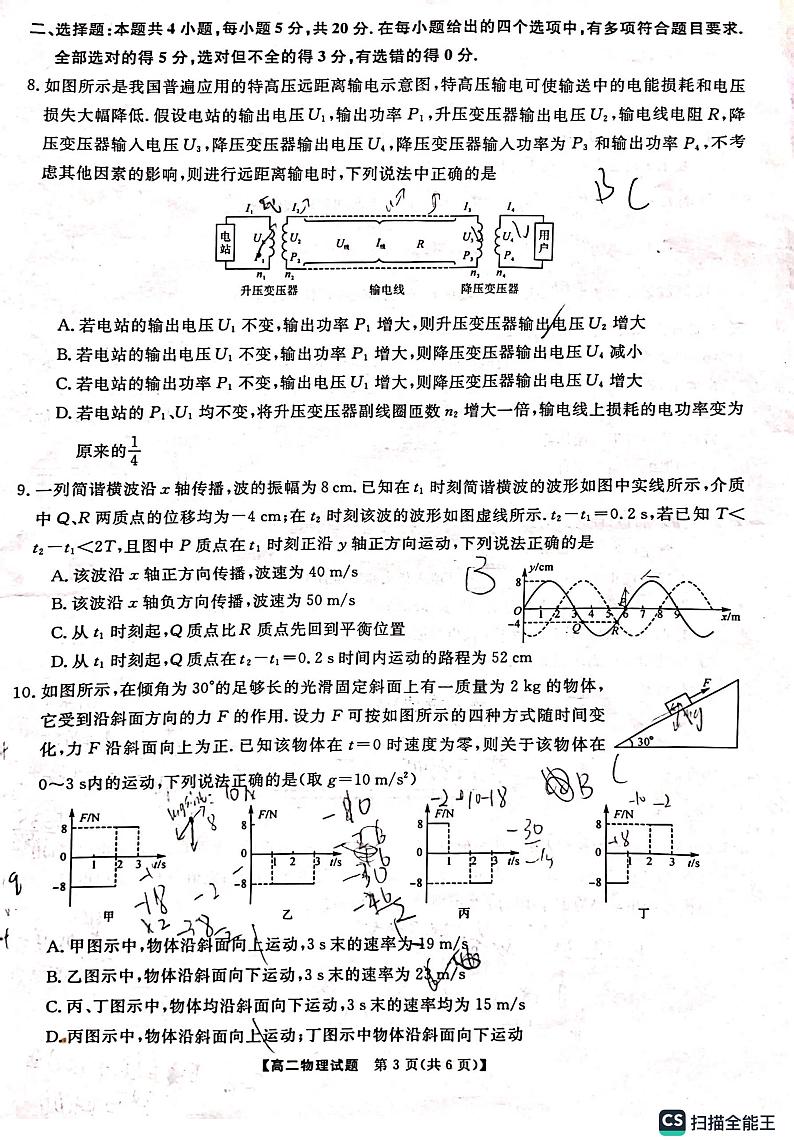 二、选择题:本题共4小题,每小题5分,共20分.在每小题给出的四个选项中,有多项符合题目要求.
全部选对的得5分,选对但不全的得3分,有选错的得0分.
8. 如图所示是我国普遍应用的特高压远距离输电示意图,特高压输电可使输送中的电能损耗和电压
损失大幅降低.假设电站的输出电压U₁,输出功率P₁,升压变压器输出电压U₂,输电线电阻R,降
压变压器输入电压U₃,降压变压器输出电压U₄,降压变压器输入功率为P₃和输出功率P₄,不考
虑其他因素的影响,则进行远距离输电时,下列说法中正确的是
B C
I₁ I₂ I₃ I₄
电站 U₁ U₂ U线 I线 R U₃ U₄ 用户
P₁ P₂ P₃ P₄
n₁ n₂ n₃ n₄
升压变压器 输电线 降压变压器
A. 若电站的输出电压U₁不变,输出功率P₁增大,则升压变压器输出电压U₂增大
B. 若电站的输出电压U₁不变,输出功率P₁增大,则降压变压器输出电压U₄减小
C. 若电站的输出功率P₁不变,输出电压U₁增大,则降压变压器输出电压U₄增大
D. 若电站的P₁、U₁均不变,将升压变压器副线圈匝数n₂增大一倍,输电线上损耗的电功率变为
原来的1/4
9. 一列简谐横波沿x轴传播,波的振幅为8 cm.已知在t₁时刻简谐横波的波形如图中实线所示,介质
中Q、R两质点的位移均为-4 cm;在t₂时刻该波的波形如图虚线所示.t₂-t₁=0.2 s,若已知T<
t₂-t₁<2T,且图中P质点在t₁时刻正沿y轴正方向运动,下列说法正确的是
A. 该波沿x轴正方向传播,波速为40 m/s
B. 该波沿x轴负方向传播,波速为50 m/s
C. 从t₁时刻起,Q质点比R质点先回到平衡位置
D. 从t₁时刻起,Q质点在t₂-t₁=0.2 s时间内运动的路程为52 cm
B
y/cm
8
O 1 2 3 4 5 6 7 8 9 x/m
-4 Q R
10. 如图所示,在倾角为30°的足够长的光滑固定斜面上有一质量为2 kg的物体,
它受到沿斜面方向的力F的作用.设力F可按如图所示的四种方式随时间变
化,力F沿斜面向上为正.已知该物体在t=0时速度为零,则关于该物体在
0~3 s内的运动,下列说法正确的是(取g=10 m/s²)
F
30°
C
B
F/N 8 0 -8 1 2 3 t/s 甲
F/N 8 0 -8 1 2 3 t/s 乙
F/N 8 0 -8 1 2 3 t/s 丙
F/N 8 0 -8 1 2 3 t/s 丁
10N
-18
×2
-2
-30
-10 -2
-18
A. 甲图示中,物体沿斜面向上运动,3 s末的速率为19 m/s
B. 乙图示中,物体沿斜面向下运动,3 s末的速率为23 m/s
C. 丙、丁图示中,物体均沿斜面向下运动,3 s末的速率均为15 m/s
D. 丙图示中,物体沿斜面向上运动;丁图示中物体沿斜面向下运动
【高二物理试题 第3页(共6页)】
CS 扫描全能王